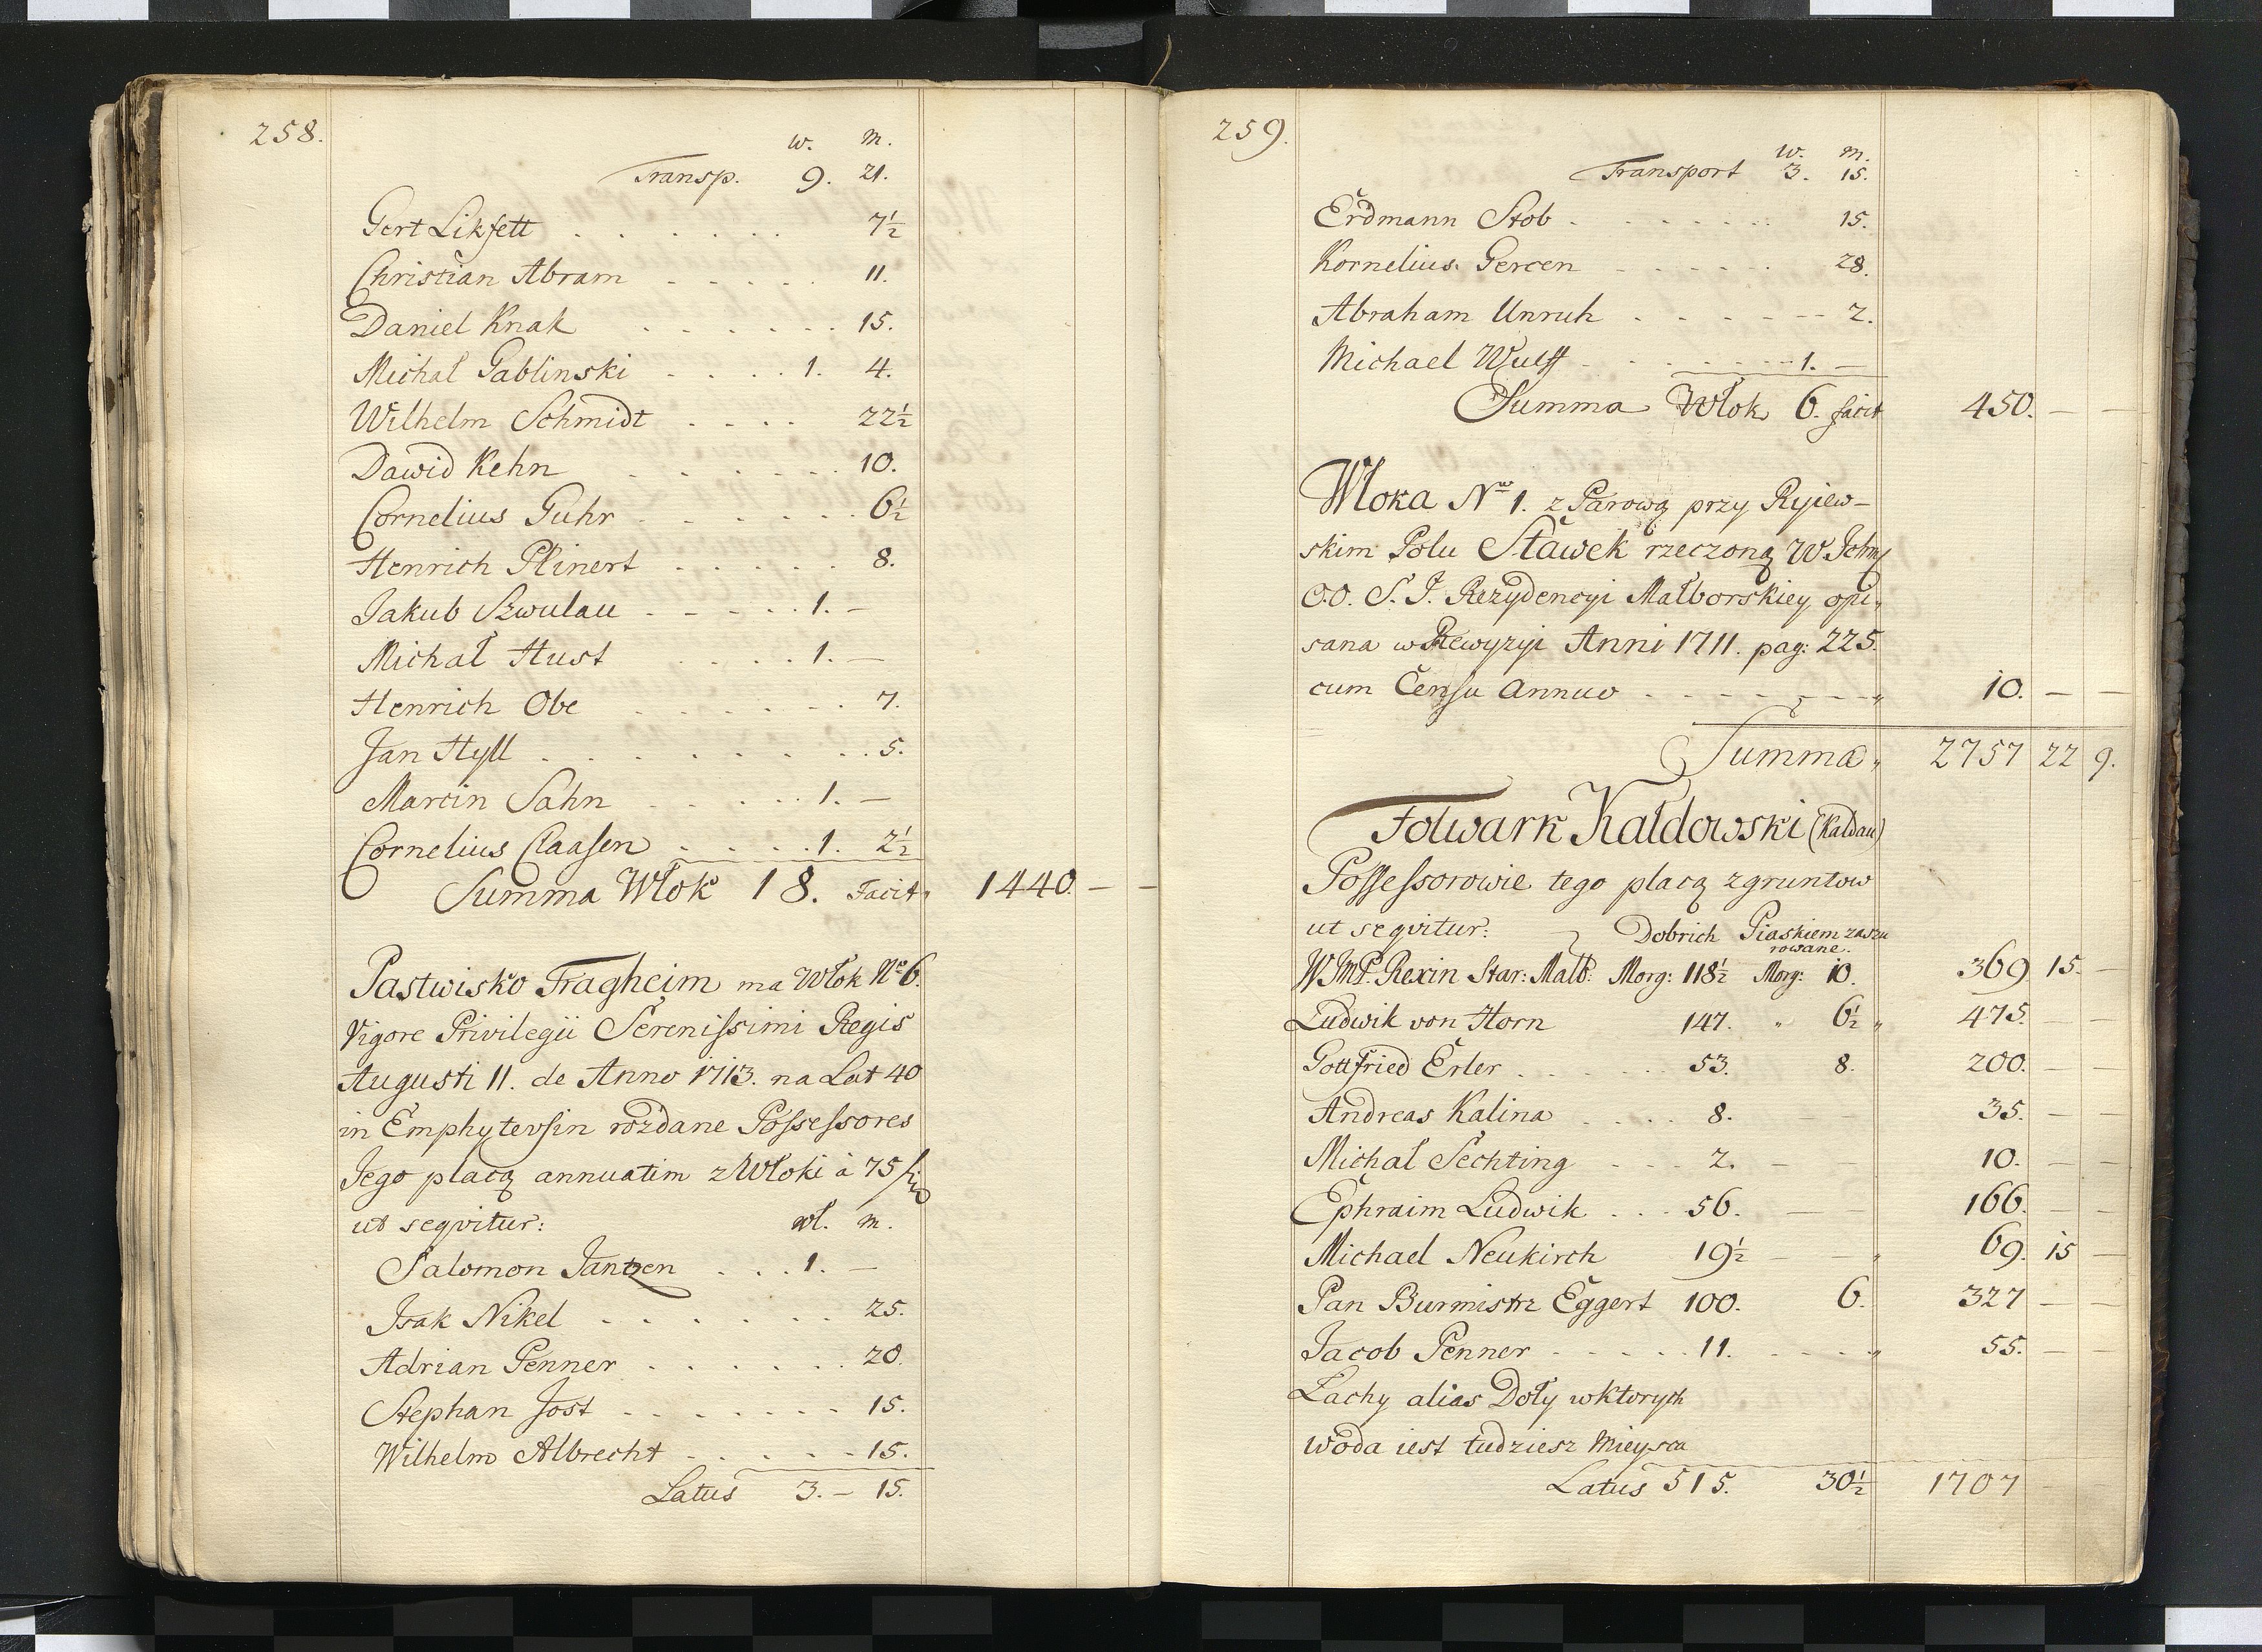 258.
w. m.
Transp. 9. 21.
Gert Likfett . . . . . . 7½
Christian Abram . . . . . 11.
Daniel Knak . . . . . . 15.
Michał Gablinski . . . . 1. 4.
Wilhelm Schmidt . . . . 22½
Dawid Kehn . . . . . . 10.
Cornelius Guhr . . . . . . 6½
Henrich Plinert . . . . . 8.
Jakub Szwulau - - - - - 1. -
Michał Hust . . . . 1. -
Henrich Obe . . . . . . 7.
Jan Hyll . . . . . . . . 5.
Marcin Sahn . . . . . 1. -
Cornelius Claasen . . . . 1. 2½
Summa Włok 18. Facit 1440. - -
Pastwisko Fragheim ma Włok No 6.
Vigore Privilegii Serenissimi Regis
Augusti II. de Anno 1713. na Lat 40
in Emphytevsin rozdane Possessores
Jego płacą annuatim z Włoki à 75
ut seqvitur: wł. m.
Salomon Jantzen . . . 1. -
Isak Nikel . . . . . . 25.
Adrian Penner . . . . . . 20.
Stephan Jost . . . . . . . 15.
Wilhelm Albrecht . . . . . 15.
Latus 3. - 15.
259.
w. m.
Transport 3. 15.
Erdmann Stob . . . . . . . 15.
Kornelius Gercen - - - - - 28.
Abraham Unruh . - - - - - 2.
Michael Wulff - - - - - - 1. -
Summa Włok 6. facit 450. - -
Włoka Nro 1. z Parową przy Ryiew-
skim Polu Stawek rzeczoną W. Ichm
O.O. S. J. Rezydencyi Malborskiey opi„
sana w Rewyzyi Anni 1711. pag: 225.
cum Censu annuo - - - - - - 10. - -
Summa „ 2757 22 9.
Folwark Kałdowski (Kaldau)
Possessorowie tego płacą z gruntow
ut seqvitur: Dobrich Piaskiem zaszu
rowane.
W. JMP. Rexin Star: Malb: Morg: 118½ Morg: 10. 369 15. -
Ludwik von Horn 147. „ 6½ „ 475. - -
Gottfried Erler . . . . . . 53. 8. 200. - -
Andreas Kalina . . . . 8. 35. - -
Michał Sechting . - - . 2. - - 10. - -
Ephraim Ludwik . . . 56. - - 166. - -
Michael Neukirch 19½ - - „ 69. 15 -
Pan Burmistrz Eggert 100. 6. 327 - -
Jacob Penner - - - - - 11. - - - - „ 55. - -
Lachy alias Doły wktorych
woda iest tudziesz Mieysca
Latus 515. 30½ 1707